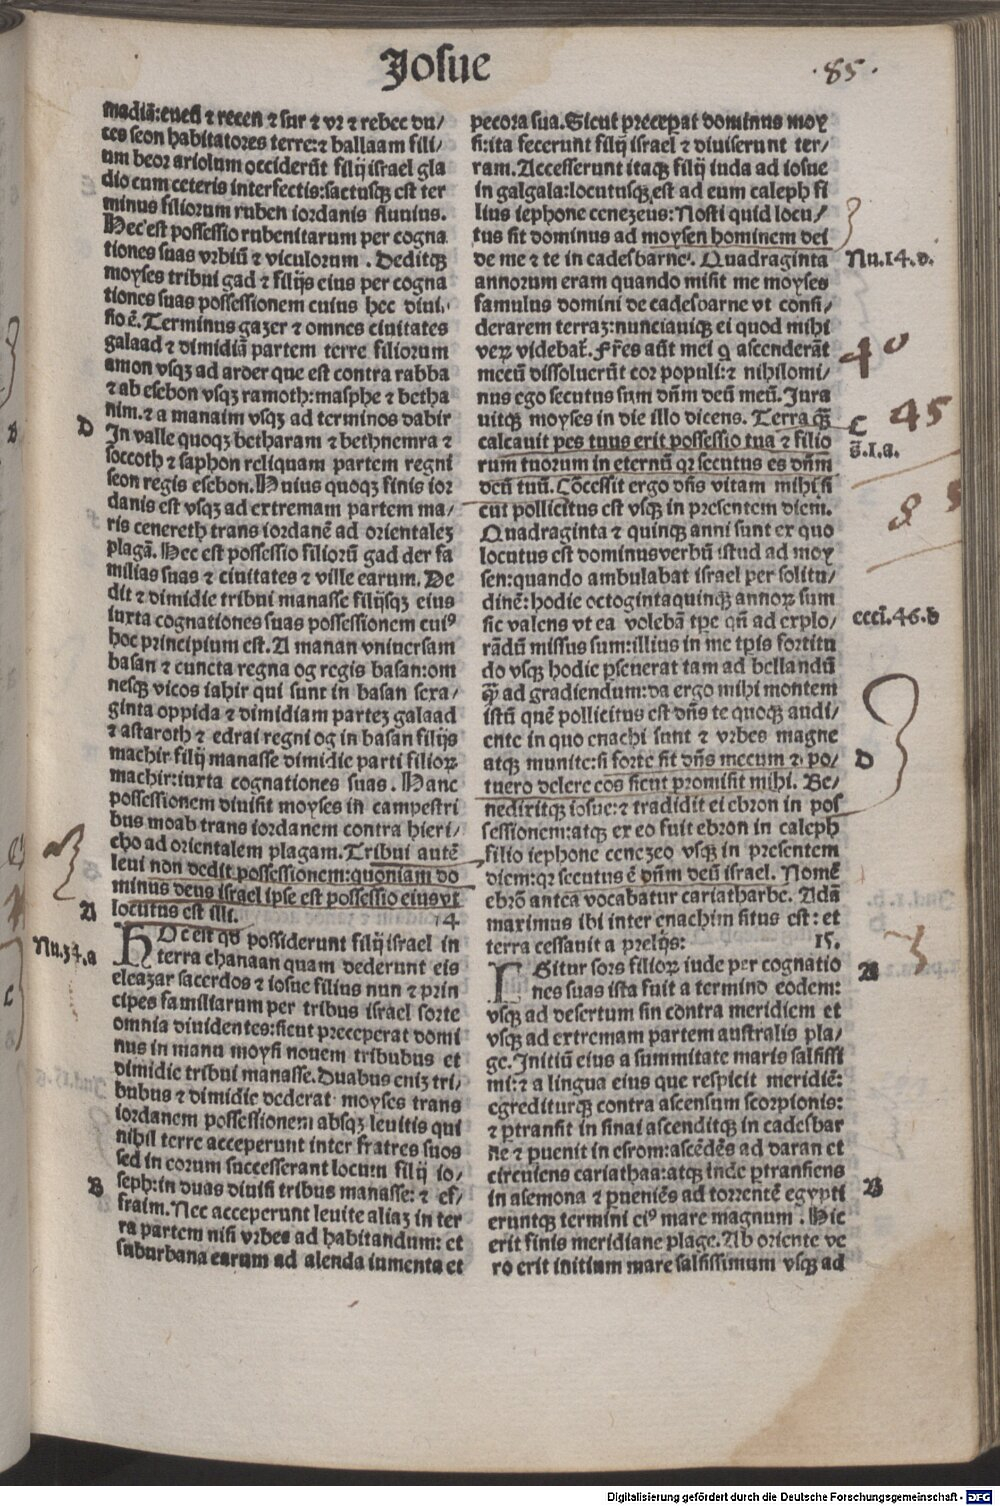 Josue
.85.
madiā:eueū ⁊ recen ⁊ sur ⁊ vr ⁊ rebee du/
ces seon habitatores terre:⁊ ballaam fili/
um beor ariolum occiderūt filij israel gla
dio cum ceteris interfectis:factusqꝫ est ter
minus filiorum ruben iordanis fluuius.
Hec est possessio rubenitarum per cogna
tiones suas vrbiū ⁊ viculorum . Deditqꝫ
moyses tribui gad ⁊ filijs eius per cogna
tiones suas possessionem cuius hec diui,
sio ē. Terminus gazer ⁊ omnes ciuitates
galaad ⁊ dimidiā partem terre filiorum
amon vsqꝫ ad aroer que est contra rabba
⁊ ab esebon vsqꝫ ramoth:masphe ⁊ betha
nim.⁊ a manaim vsqꝫ ad terminos dabir
D
In valle quoqꝫ betharam ⁊ bethnemra ⁊
soccoth ⁊ saphon reliquam partem regni
seon regis esebon. Huius quoqꝫ finis ior
danis est vsqꝫ ad extremam partem ma/
ris cenereth trans iordanē ad orientaleꝫ
plagā. Hec est possessio filiorū gad per fa
milias suas ⁊ ciuitates ⁊ ville earum. De
dit ⁊ dimidie tribui manasse filijsqꝫ eius
iuxta cognationes suas possessionem cuiꝰ
hoc principium est. A manan vniuersam
basan ⁊ cuncta regna og regis basan:om
nesqꝫ vicos iahir qui sunt in basan sexa/
ginta oppida ⁊ dimidiam parteꝫ galaad
⁊ astaroth ⁊ edrai regni og in basan filijs
machir filij manasse dimidie parti filioꝝ
machir:iuxta cognationes suas . Hanc
possessionem diuisit moyses in campestri
bus moab trans iordanem contra hieri/
cho ad orientalem plagam. Tribui autē
leui non dedit possessionem:quoniam do
minus deus israel ipse est possessio eius vt
A
locutus est illi. 14.
Nu.34.a
HOc est qd possiderunt filij israel in
terra chanaan quam dederunt eis
eleazar sacerdos ⁊ iosue filius nun ⁊ prin
cipes familiarum per tribus israel sorte
omnia diuidentes:sicut preceperat domi
nus in manu moysi nouem tribubus et
dimidie tribui manasse. Duabus eniꝫ tri/
bubus ⁊ dimidie dederat moyses trans
iordanem possessionem absqꝫ leuitis qui
nihil terre acceperunt inter fratres suos
sed in eorum successerant locum filij io/
B
seph:in duas diuisi tribus manasse: ⁊ ef/
fraim. Nec acceperunt leuite aliaꝫ in ter
ra partem nisi vrbes ad habitandum: et
suburbana earum ad alenda iumenta et
pecora sua. Sicut preceperat dominus moy
si:ita fecerunt filij israel ⁊ diuiserunt ter/
ram. Accesserunt itaqꝫ filij iuda ad iosue
in galgala:locutusqꝫ est ad eum caleph fi
lius iephone cenezeus: Nosti quid locu/
tus sit dominus ad moysen hominem dei
Nu.14.d.
de me ⁊ te in cadesbarne. Quadraginta
annorum eram quando misit me moyses
famulus domini de cadesbarne vt consi/
derarem terraꝫ:nunciauiqꝫ ei quod mihi
verꝝ videbat̄. Fr̄es aūt mei q ascenderāt
40
mecū dissoluerūt cor populi:⁊ nihilomi/
nus ego secutus sum dn̄m deū meū. Jura
uitqꝫ moyses in die illo dicens. Terra quā
C 45
calcauit pes tuus erit possessio tua ⁊ filio
s̄.1.a.
rum tuorum in eternū qꝛ secutus es dn̄m
deū tuū. Cōcessit ergo dn̄s vitam mihi si
cut pollicitus est vsqꝫ in presentem diem.
85
Quadraginta ⁊ quinqꝫ anni sunt ex quo
locutus est dominus verbū istud ad moy
sen:quando ambulabat israel per solitu/
dinē: hodie octogintaquinqꝫ annoꝝ sum
sic valens vt ea volebā tp̄e qn̄ ad explo/
ecci.46.b
rādū missus sum:illius in me tp̄is fortitu
do vsqꝫ hodie p̄seuerat tam ad bellandū
qꝫ̄ ad gradiendum:da ergo mihi montem
istū quē pollicitus est dn̄s te quoqꝫ audi/
ente in quo enachi sunt ⁊ vrbes magne
D
atqꝫ munite:si forte sit dn̄s mecum ⁊ po/
tuero delere eos sicut promisit mihi. Be/
nedixitqꝫ iosue:⁊ tradidit ei ebron in pos
sessionem:atqꝫ ex eo fuit ebron in caleph
filio iephone cenezeo vsqꝫ in presentem
diem:qꝛ secutus ē dn̄m deū israel. Nomē
ebrō antea vocabatur cariatharbe. Adā
maximus ibi inter enachim situs est: et
terra cessauit a prelijs: 15.
A
IGitur sors filioꝝ iude per cognatio
nes suas ista fuit a termino eodem:
vsqꝫ ad desertum sin contra meridiem et
vsqꝫ ad extremam partem australis pla/
ge. Initiū eius a summitate maris salsissi
mi:⁊ a lingua eius que respicit meridiē:
egrediturqꝫ contra ascensum scorpionis:
⁊ p̄transit in sinai ascenditqꝫ in cadesbar
ne ⁊ puenit in esrom:ascēdēs ad daran et
circuiens cariathaa:atqꝫ inde p̄transiens
B
in asemona ⁊ p̄ueniēs ad torrentē egypti
eruntqꝫ termini eiꝰ mare magnum . Hic
erit finis meridiane plage. Ab oriente ve
ro erit initium mare salsissimum vsqꝫ ad
Digitalisierung gefördert durch die Deutsche Forschungsgemeinschaft - DFG